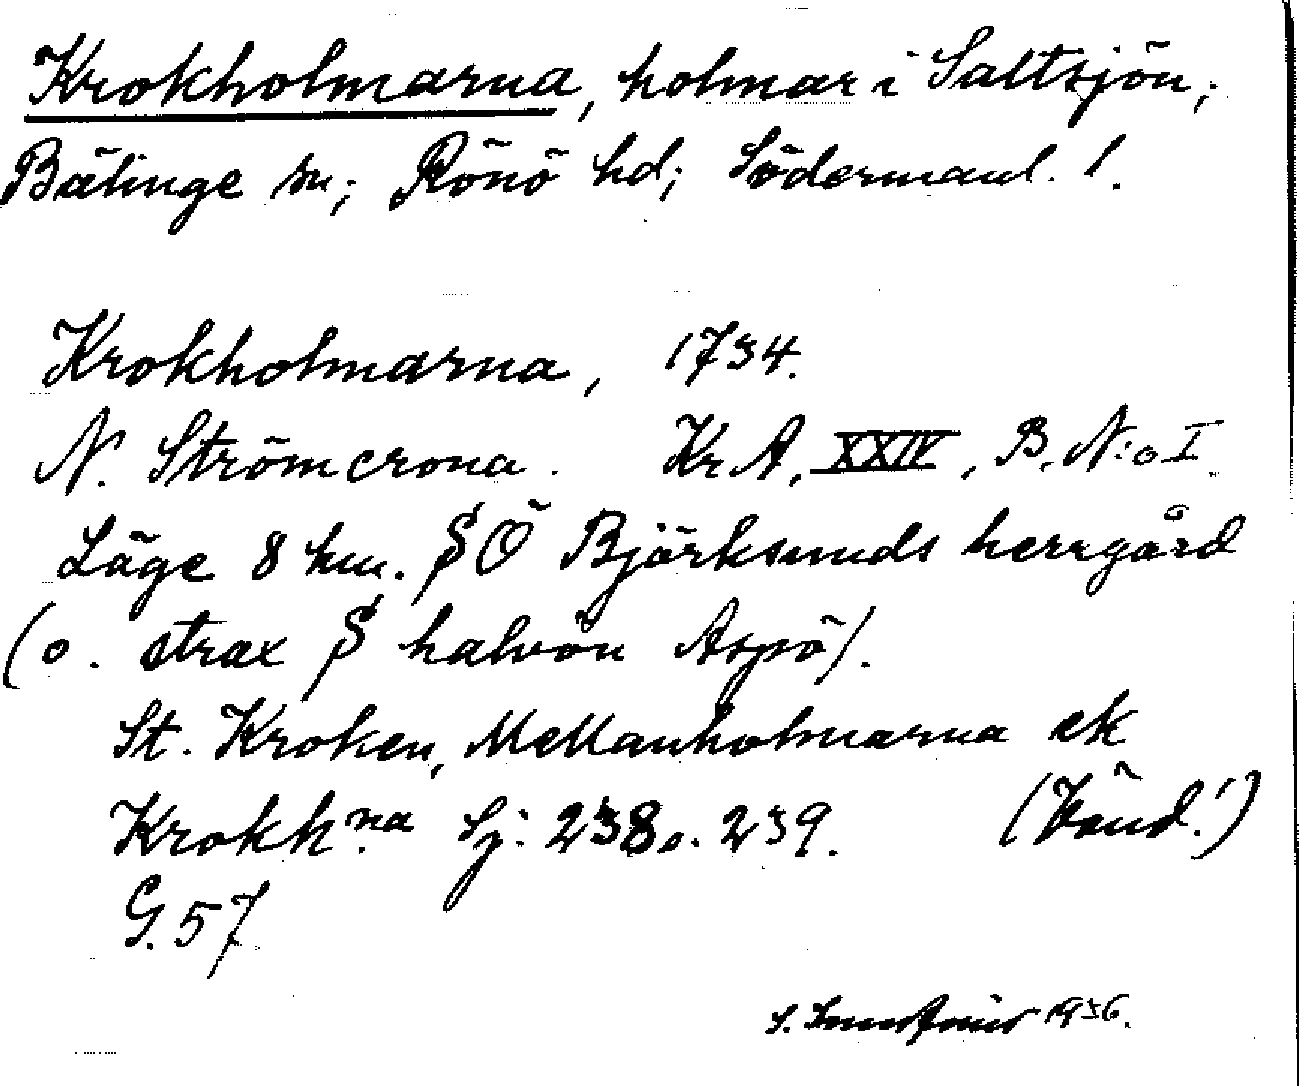 Krokholmarna, holmar i Saltsjön;
Bälinge sn; Rönö hd; Södermanl. l.
Krokholmarna, 1734.
N. Strömcrona. KrA, XXIV, B. N:o I.
Läge 8 km. SÖ Björksunds herrgård
(o. strax S halvön Aspö).
St. Kroken, Mellanholmarna ek
Krokh.na Sj: 238 o. 239. (Vänd!)
G. 57
S. 1936.